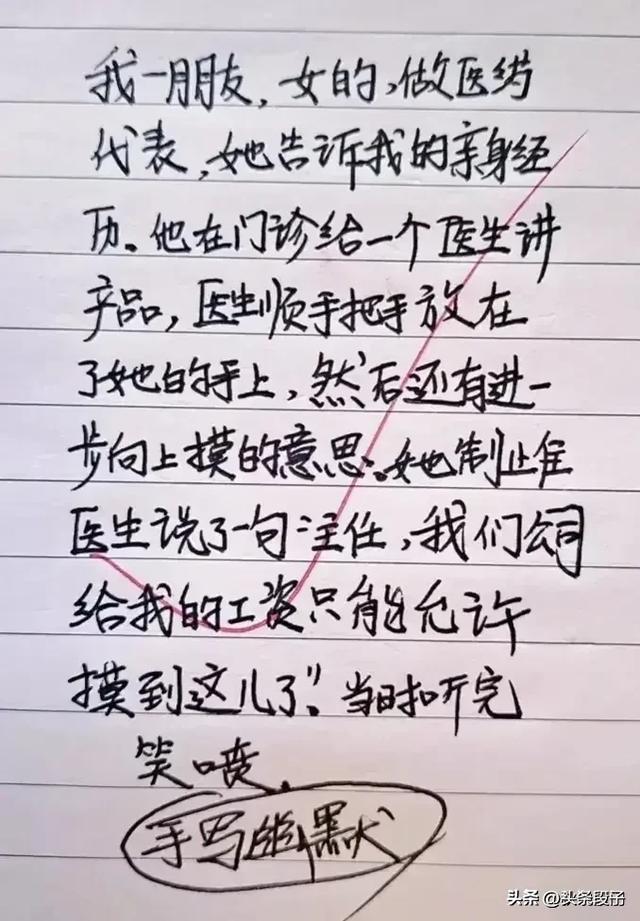 我一朋友，女的，做医药
代表，她告诉我的亲身经
历。他在门诊给一个医生讲
产品，医生顺手把手放在
了她的手上，然后还有进一
步向上摸的意思。她制止住
医生说了一句主任，我们公司
给我的工资只能允许
摸到这儿了”。当时听完
笑喷.
手写幽默
头条 @头条段子